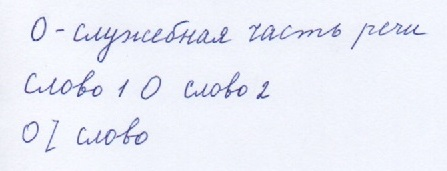 О - служебная часть речи
Слово 1 О слово 2
О [ слово